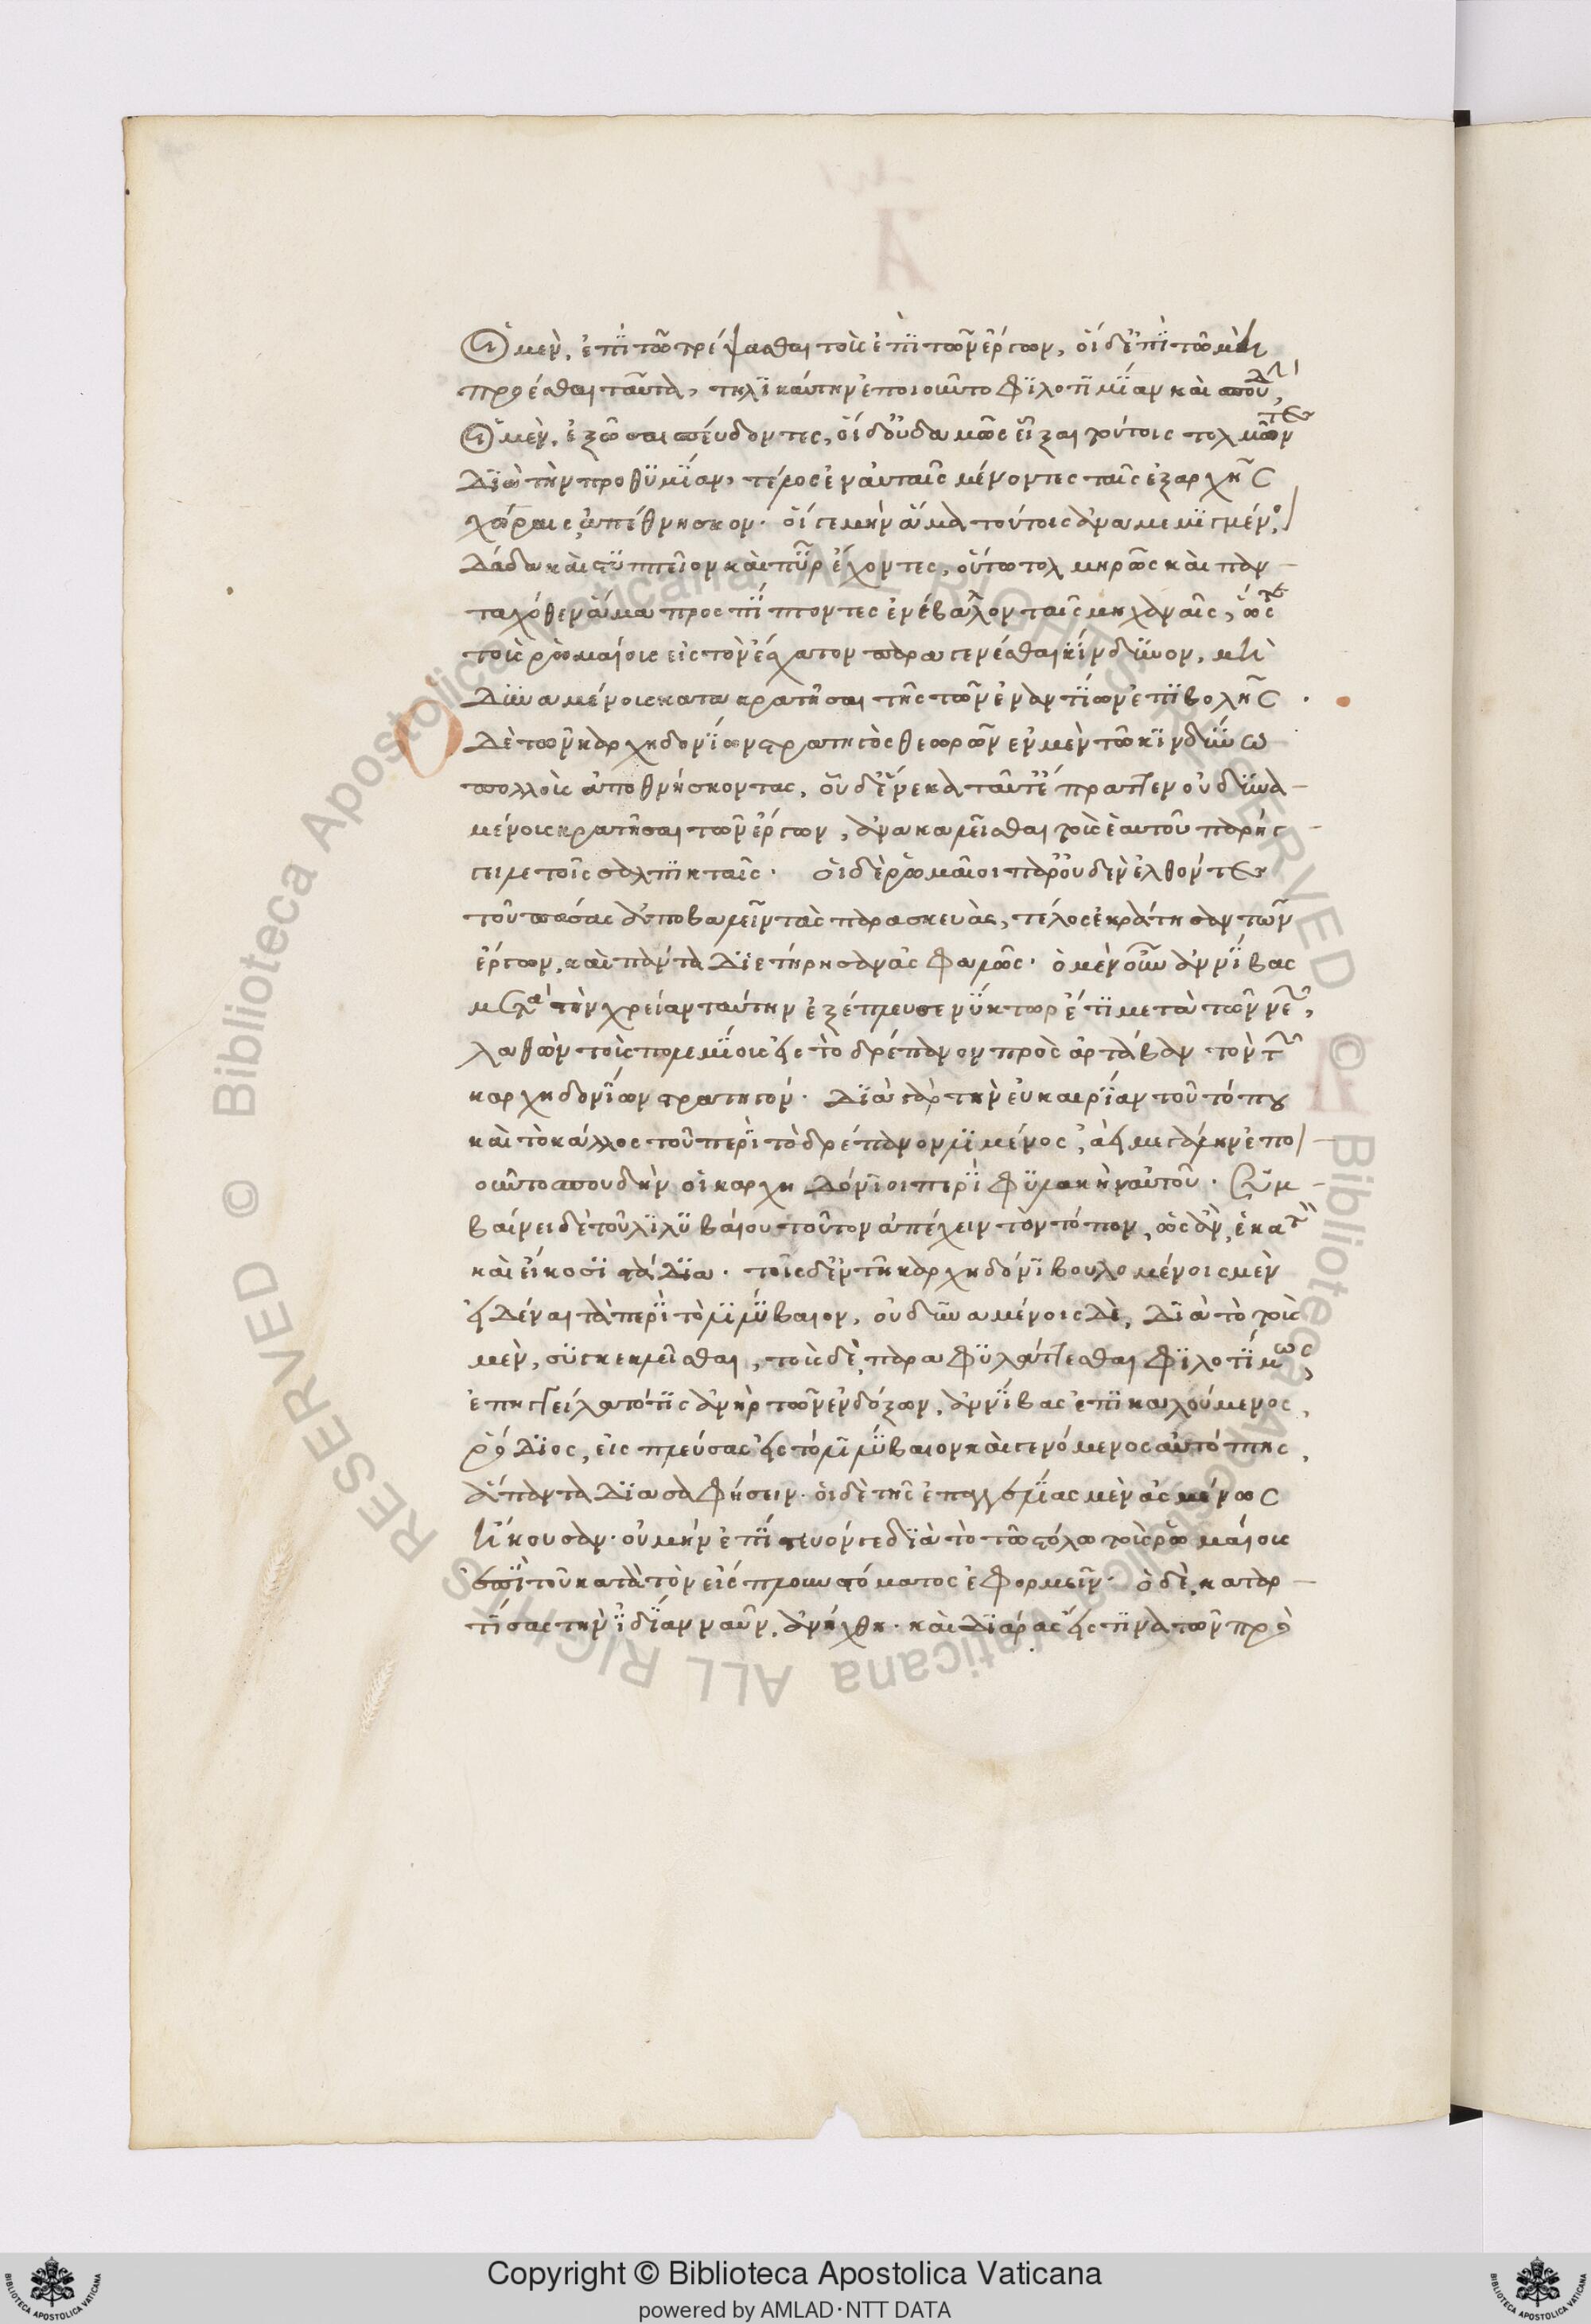 Οἱ μὲν, ἐπὶ τῶ τρέψασθαι τοὺς ἐπὶ τῶν ἔργων, οἱ δ' ἐπὶ τῶ μὴ
προέσθαι ταῦτα, τηλικαύτην ἐποιοῦντο φιλοτιμίαν καὶ σπουδήν
Οἱ μὲν, ἐξῶσαι σπεύδοντες, οἱ δ' οὐδαμῶς εἶξαι τούτοις τολμῶντες
διὰ τὴν προθυμίαν, τέλος ἐν αὐταῖς μένοντες ταῖς ἐξαρχῆς
χώραις ἀπέθνησκον. οἵ γε μὴν ἅμα τούτοις ἀναμεμιγμένοι
δάδα καὶ στυππεῖον καὶ πῦρ ἔχοντες, οὕτω τολμηρῶς καὶ παν
ταχόθεν ἅμα προσπίπτοντες ἐνέβαλλον ταῖς μηχαναῖς, ὥστε
τοὺς ῥωμαίους εἰς τὸν ἔσχατον παραγενέσθαι κίνδυνον, μὴ
δυναμένους κατακρατῆσαι τῆς τῶν ἐναντίων ἐπιβολῆς.
Ὁ δὲ τῶν καρχηδονίων στρατηγὸς θεωρῶν ἐν μὲν τῶ κινδύνω
πολλοὺς ἀποθνήσκοντας, οὗ δ' ἕνεκα ταῦτ' ἔπραττεν οὐ δυνα
μένους κρατῆσαι τῶν ἔργων, ἀνακαλεῖσθαι τοὺς ἑαυτοῦ παρήγ
γειλε τοῖς σαλπικταῖς. Οἱ δὲ ῥωμαῖοι παρ' οὐδὲν ἐλθόντες
τοῦ πάσας ἀποβαλεῖν τὰς παρασκευὰς, τέλος ἐκράτησαν τῶν
ἔργων, καὶ πάντα διετήρησαν ἀσφαλῶς. ὁ μὲν οὖν ἀννίβας
μετὰ τὴν χρείαν ταύτην ἐξέπλευσε νύκτωρ ἔτι μετὰ τῶν νεῶν,
λαθὼν τοὺς πολεμίους εἰς τὸ δρέπανον πρὸς ἀρτάβαν τὸν τῶν
καρχηδονίων στρατηγόν. διὰ γὰρ τὴν εὐκαιρίαν τοῦ τόπου
καὶ τὸ κάλλος τοῦ περὶ τὸ δρέπανον λιμένος, ἀεὶ μεγάλην ἐποι
οῦντο σπουδὴν οἱ καρχηδόνιοι περὶ φυλακὴν αὐτοῦ. Συμ
βαίνει δὲ τοῦ λιλυβαίου τοῦτον ἀπέχειν τὸν τόπον, ὡς ἂν, ἑκατὸν
καὶ εἴκοσι στάδια. τοῖς δ' ἐν τῆ καρχηδόνι βουλομένοις μὲν
εἰδέναι τὰ περὶ τὸ λιλύβαιον, οὐ δυναμένοις δὲ, διὰ τὸ τοὺς
μὲν, συγκεκλεῖσθαι, τοὺς δὲ, παραφυλάττεσθαι φιλοτίμως,
ἐπηγγείλατό τις ἀνὴρ τῶν ἐνδόξων, ἀννίβας ἐπικαλούμενος
ῥόδιος, εἰσπλεύσας εἰς τὸ λιλύβαιον καὶ γενόμενος αὐτόπτης,
ἅπαντα διασαφήσειν. οἱ δὲ τῆς ἐπαγγελίας μὲν ἀσμένως
ἤκουσαν. οὐ μὴν ἐπίστευόν γε διὰ τὸ τῶ στόλω τοὺς ῥωμαίους
ἐπὶ τοῦ κατὰ τὸν εἴσπλουν στόματος ἐφορμεῖν. ὁ δὲ, καταρ
τίσας τὴν ἰδίαν ναῦν, ἀνήχθη. καὶ διάρας εἴς τινα τῶν πρὸ